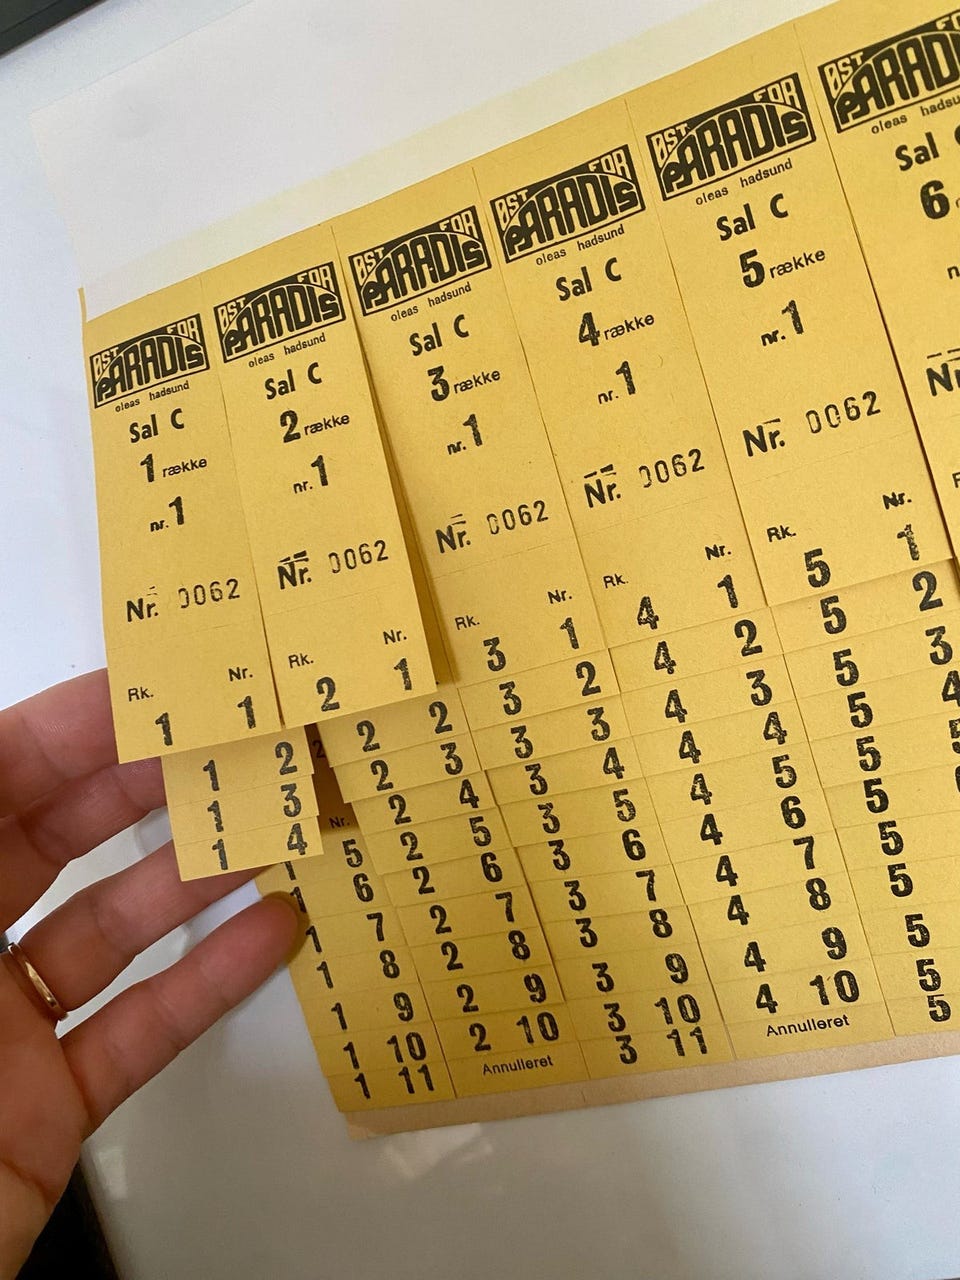 ØST FOR
PARADIS
oleas hadsund
Sal C
1 række
nr. 1
Nr. 0062
Rk. Nr.
1 1
1 2
1 3
1 4
Nr.
1 5
1 6
1 7
1 8
1 9
1 10
1 11
ØST FOR
PARADIS
oleas hadsund
Sal C
2 række
nr. 1
Nr. 0062
Rk. Nr.
2 1
2 2
2 3
2 4
2 5
2 6
2 7
2 8
2 9
2 10
Annulleret
ØST FOR
PARADIS
oleas hadsund
Sal C
3 række
nr. 1
Nr. 0062
Rk. Nr.
3 1
3 2
3 3
3 4
3 5
3 6
3 7
3 8
3 9
3 10
3 11
ØST FOR
PARADIS
oleas hadsund
Sal C
4 række
nr. 1
Nr. 0062
Rk. Nr.
4 1
4 2
4 3
4 4
4 5
4 6
4 7
4 8
4 9
4 10
Annulleret
ØST FOR
PARADIS
oleas hadsund
Sal C
5 række
nr. 1
Nr. 0062
Rk. Nr.
5 1
5 2
5 3
5 4
5 5
5
5
5
5
5
5
ØST
oleas
Sal
6